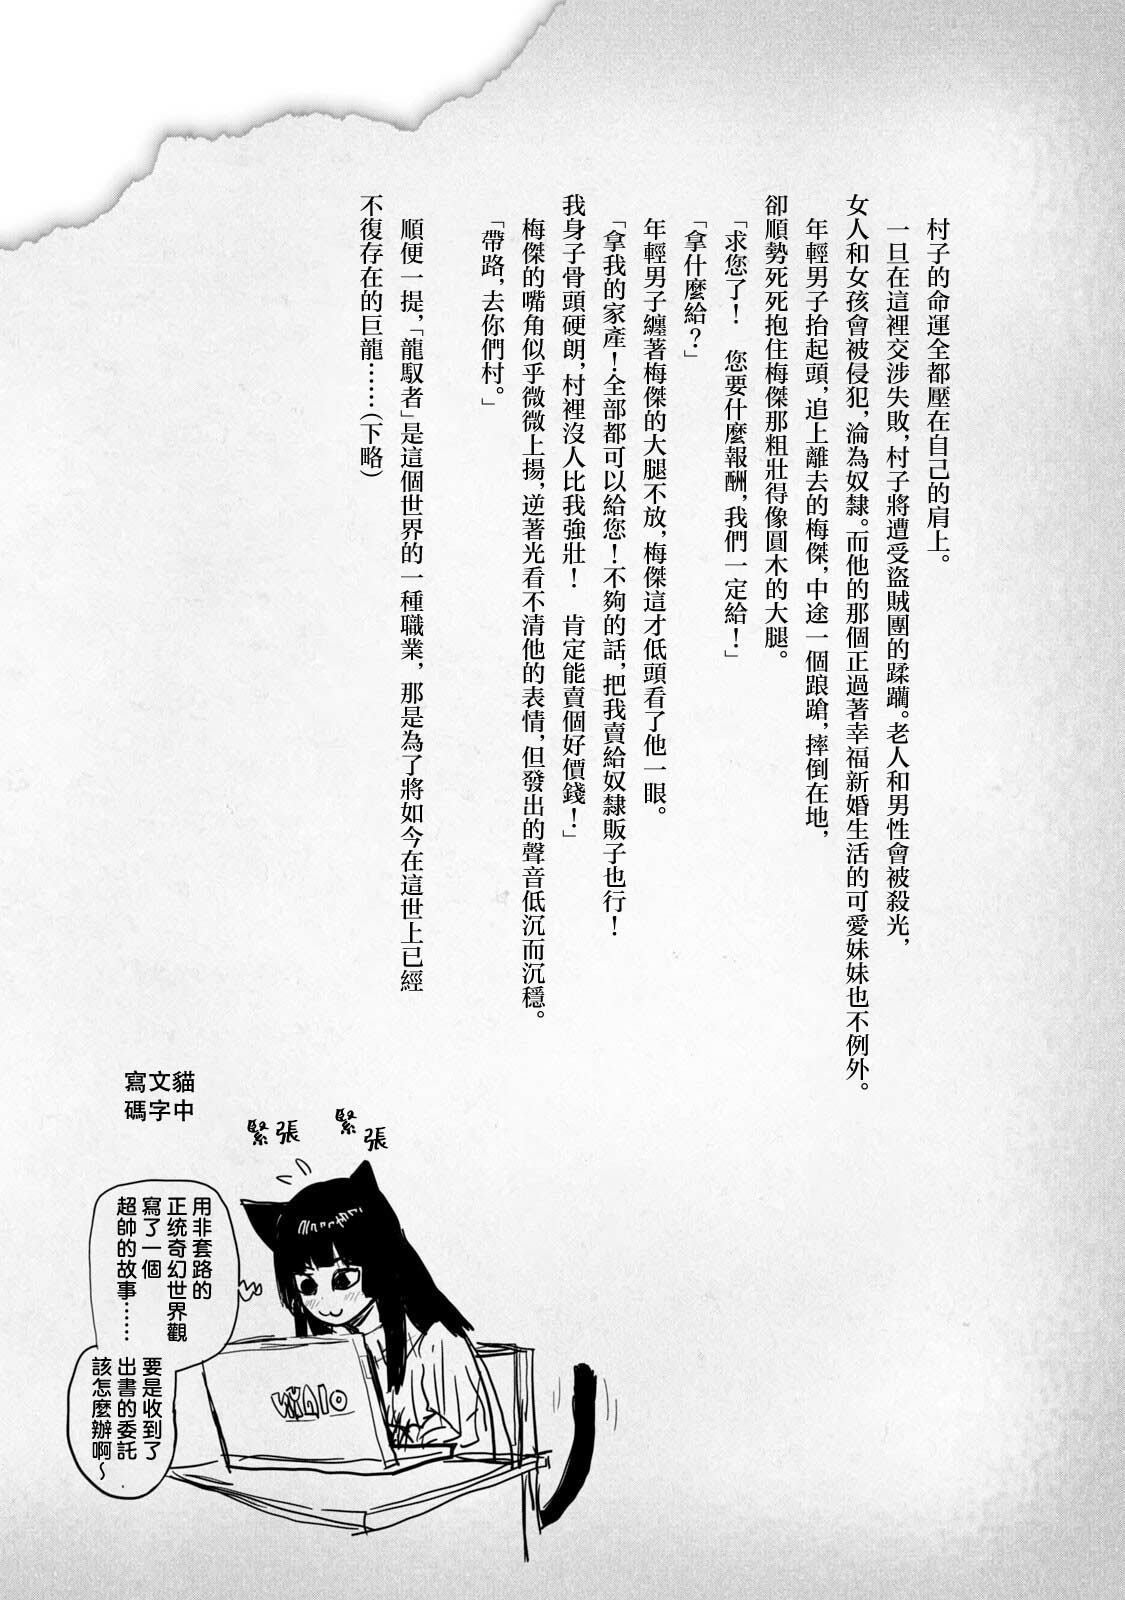 村子的命運全都壓在自己的肩上。
一旦在這裡交涉失敗，村子將遭受盜賊團的蹂躪。老人和男性會被殺光，
女人和女孩會被侵犯，淪為奴隸。而他的那個正過著幸福新婚生活的可愛妹妹也不例外。
年輕男子抬起頭，追上離去的梅傑，中途一個踉蹌，摔倒在地，
卻順勢死死抱住梅傑那粗壯得像圓木的大腿。
「求您了！　您要什麼報酬，我們一定給！」
「拿什麼給？」
年輕男子纏著梅傑的大腿不放，梅傑這才低頭看了他一眼。
「拿我的家產！全部都可以給您！不夠的話，把我賣給奴隸販子也行！
我身子骨頭硬朗，村裡沒人比我強壯！　肯定能賣個好價錢！」
梅傑的嘴角似乎微微上揚，逆著光看不清他的表情，但發出的聲音低沉而沉穩。
「帶路，去你們村。」
順便一提，「龍馭者」是這個世界的一種職業，那是為了將如今在這世上已經
不復存在的巨龍……（下略）
貓中
文字
寫碼
緊張
緊張
用非套路的
正統奇幻世界觀
寫了一個
超帥的故事……
要是收到了
出書的委託
該怎麼辦啊～